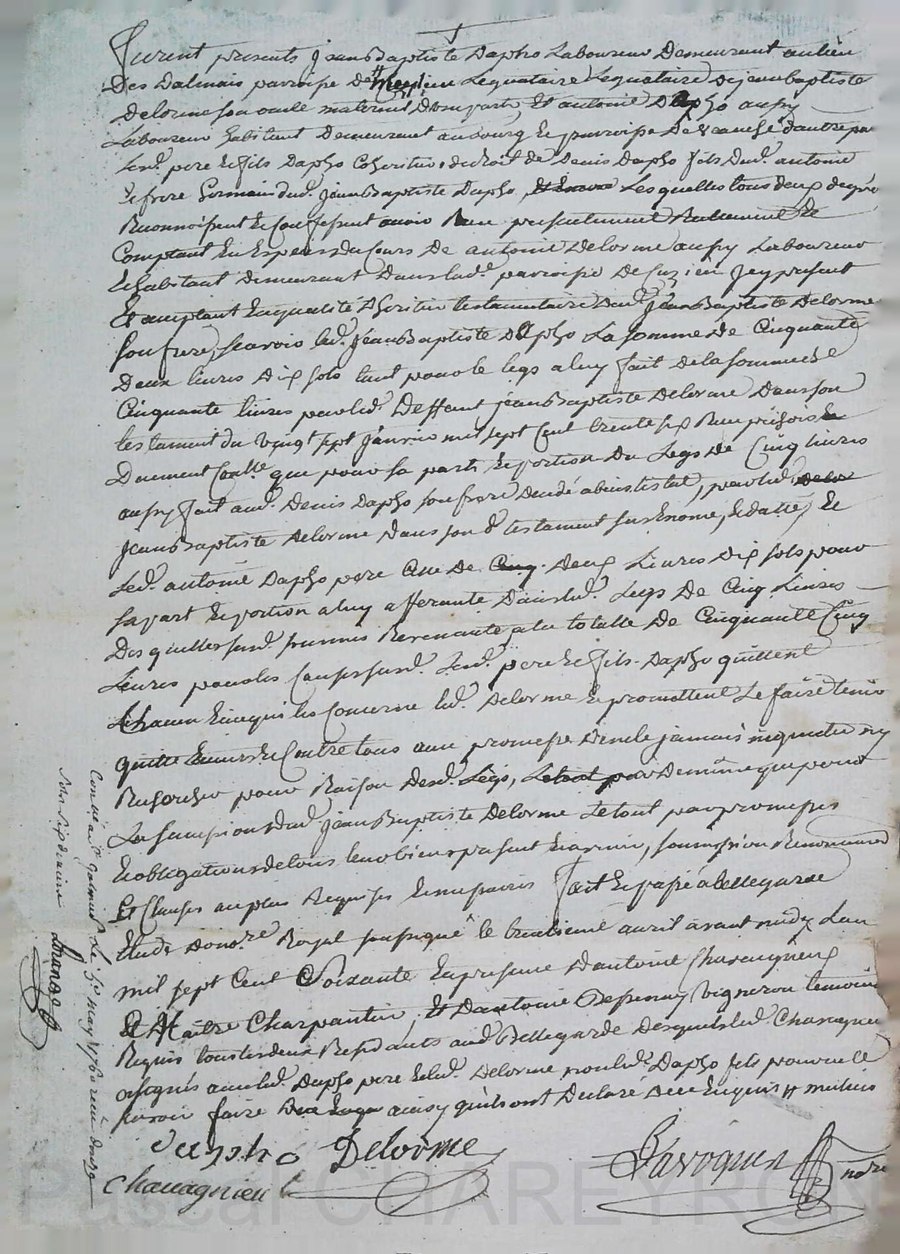 furent presents Jean Baptiste Dapho Laboureur Demeurant au lieu
Des Dalmais parroisse de Leguataire Leguataire de jean baptiste
delorme son oncle maternel d'une part, Et antoine Dapho aussy
Laboureur habitant Demeurant au bourg Et parroisse De d'autre par
Lesd. pere Et fils Dapho Coheritiers de droit de Denis Dapho fils dud. antoine
Et frere Germain dud. jean Baptiste Dapho, Lesquelles tous deux de gré
Reconnoissent Et Confessent avoir Reu presentement Reellement Et
Comptant En Especes du Cours De antoine Delorme aussy Laboureur
Et habitant Demeurant Dans lad. parroisse De Suzieu Jcy present
Et acceptant En qualité d'heritier testamentaire dud. Jean Baptiste Delorme
son frere, scavoir led. Jean Baptiste Dapho La somme De Cinquante
Deux livres Dix sols tant pour le legs a luy fait de la somme De
Cinquante livres par led. Deffunt jean Baptiste Delorme Dans son
testament du vingt sept Janvier mil sept Cent trente six
Duement Conllé que pour sa part Et portion Du Legs De Cinq livres
aussy fait aud. Denis Dapho son frere Decedé abintestat, par led.
Jean Baptiste Delorme Dans son d. testament susEnoncé, Et datté, Et
Led. antoine Dapho pere Celle De Deux Livres Dix sols pour
sa part Et portion a luy afferante Dans led. Legs De Cinq Livres
Desquelles susd. sommes Revenante a la totalle De Cinquante Cinq
Livres pour les Causes susd. Lesd. pere Et fils Dapho quittent
Chacun En ce qui les Concerne led. Delorme Et promettent Le faire tenir
quitte Envers Et Contre tous avec promesse De ne le jamais inquietter ny
Rechercher pour Raison Desd. Legs, De meme que pour
La succession dud. Jean Baptiste Delorme Le tout par promesses
Et obligations de tous leurs biens present Et avenir, soumission Renonciaõn
Et Clauses au plus Requises Et necessaires fait Et passé a Bellegarde
Etude du nore Royal soussigné le trentieme avril avant midy L'an
mil sept Cent Soixante En presence D'antoine Chavagnieu
Maitre Charpantier, Et D'antoine vigneron temoins
Requis tous les deux Residants aud. Bellegarde Desquels led. Chavagnieu
a signé avec led. Dapho pere Et led. Delorme non led. Dapho fils pour ne le
scavoir faire ainsy qu'ils ont Declaré De ce Enquis
Dapho Delorme
Chavagnieu Ravoquen nore
Conllé a St Galmier Le 5e may 1760 receu douze
sols six deniers